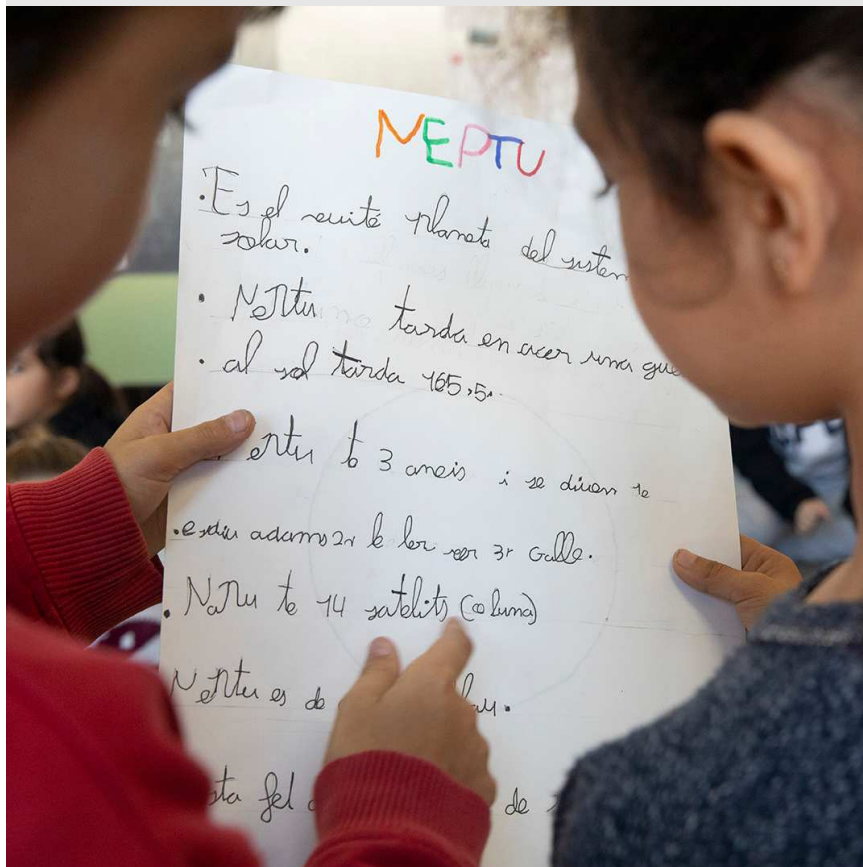 NEPTU
· Es el vuité planeta del sistem
solar.
· Neptu tarda en acer una gue
· al sol tarda 165,5.
entu té 3 aneis i se diuen 1e
· es diu adams 2n le ler rer 3r Galle.
· Neptu te 14 satelits (o luna)
Neptu es de lau.
sta fet de